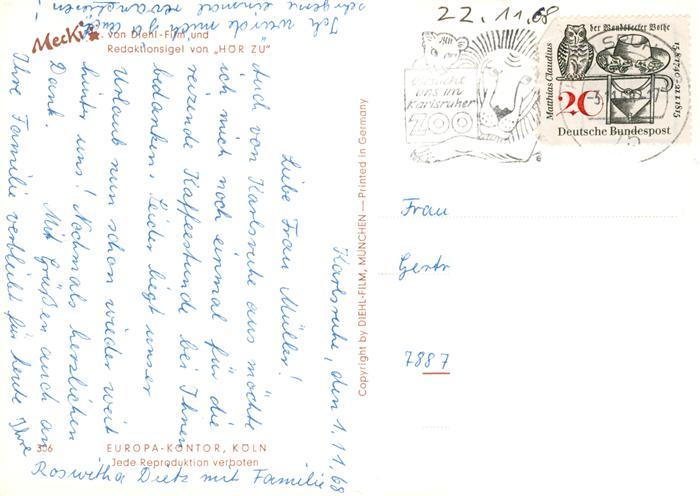 22.11.68
Besucht
uns im
Karlsruher
ZOO
der Wandsbecker Bothe
Matthias Claudius
15.8.1740-21.1.1815
20
Deutsche Bundespost
Mecki
von Diehl-Film und
Redaktionsigel von "HÖR ZU"
Karlsruhe, den 1.11.68
Liebe Frau Müller!
Auch von Karlsruhe aus möchte
ich mich noch einmal für die
reizende Kaffeestunde bei Ihnen
bedanken. Leider liegt unser
Urlaub nun schon wieder weit
hinter uns! Nochmals herzlichen
Dank. Mit Grüßen auch an
Ihre Familie verbleibt für heute Ihre
Roswitha Dietz mit Familie
Ich würde mich ja auch
gerne einmal revanchieren
Copyright by DIEHL-FILM, MÜNCHEN — Printed in Germany
Frau
Gertr
7887
306
EUROPA-KONTOR, KÖLN
Jede Reproduktion verboten